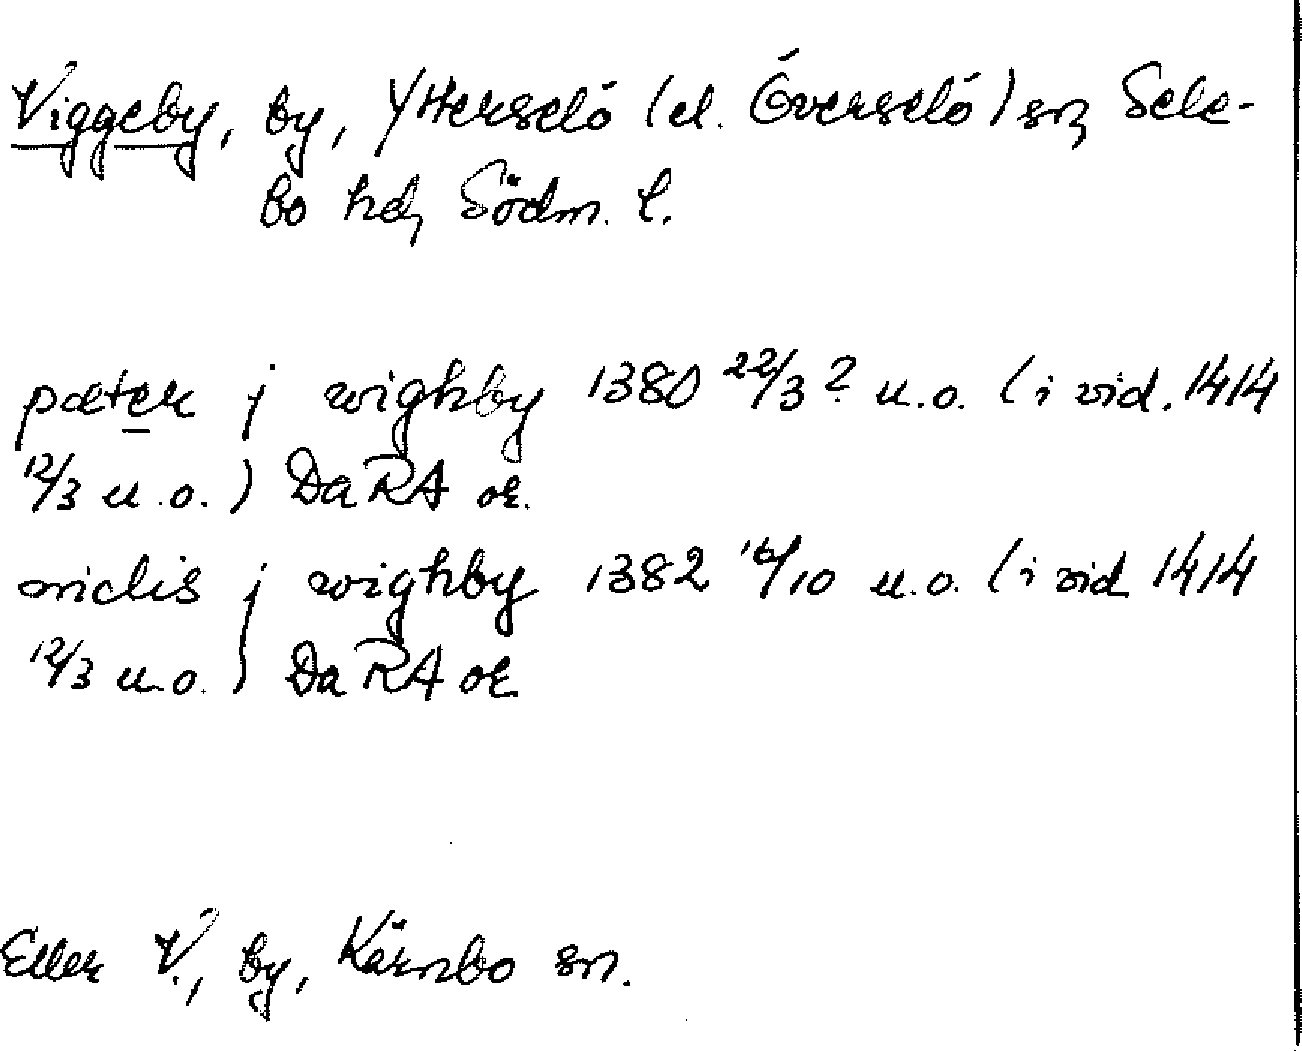 Viggeby, by, Ytterselö (el. Överselö) sn, Sele-
bo hd, Södm. l.
pæter j wighby 1380 22/3? u.o. (i vid. 1414
12/3 u.o.) Da RA or.
niclis j wighby 1382 16/10 u.o. (i vid 1414
12/3 u.o.) Da RA or
Eller V., by, Kärnbo sn.